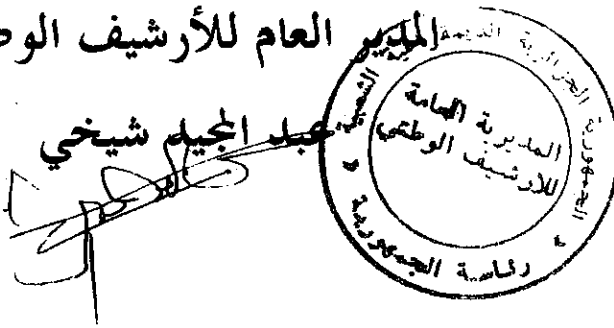 المدير العام للأرشيف الوط
عبد المجيد شيخي
الجمهورية الجزائرية الديمقراطية الشعبية
المديرية العامة
للأرشيف الوطني
رئاسة الجمهورية